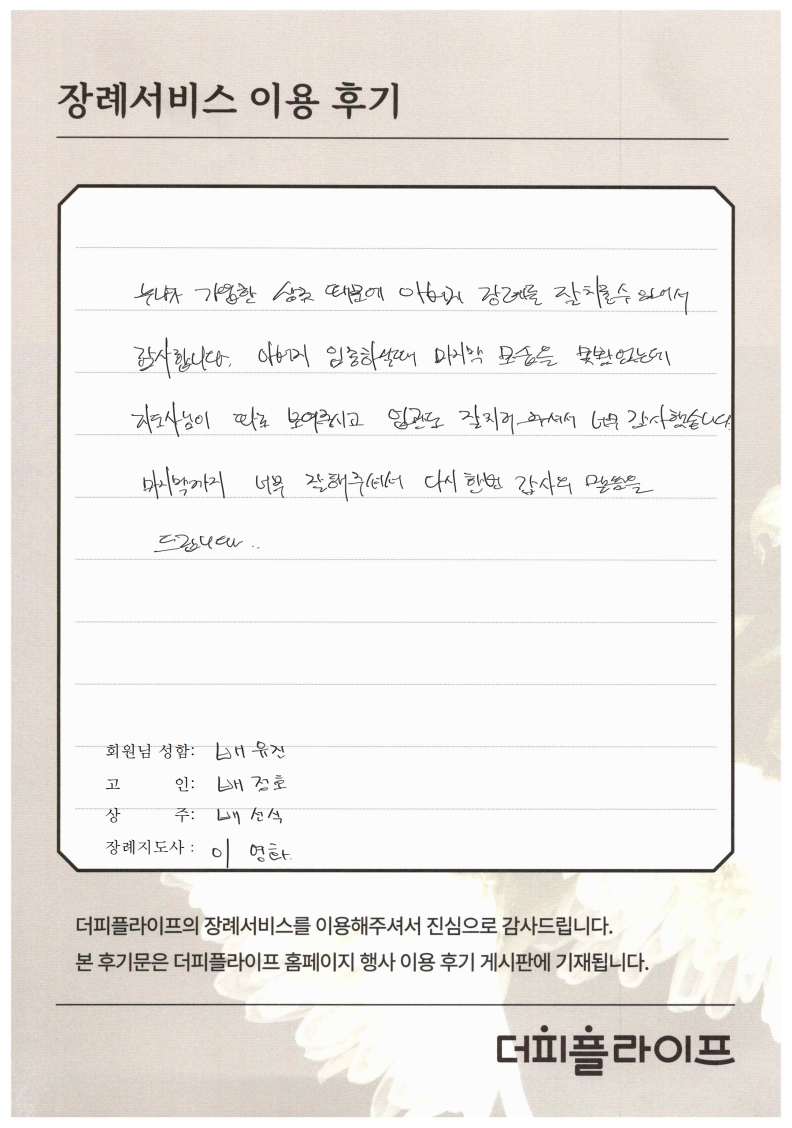 장례서비스 이용 후기
누나가 가입한 상조 때문에 아버지 장례를 잘치를수 있어서
감사합니다. 아버지 임종하실때 마지막 모습을 못봤었는데
지도사님이 따로 보여주시고 입관도 잘지켜 주셔서 너무 감사했습니다.
마지막까지 너무 잘해주셔서 다시한번 감사의 말씀을
드립니다..
회원님 성함: 배유진
고 인: 배정호
상 주: 배선식
장례지도사 : 이 영화.
더피플라이프의 장례서비스를 이용해주셔서 진심으로 감사드립니다.
본 후기문은 더피플라이프 홈페이지 행사 이용 후기 게시판에 기재됩니다.
더피플라이프